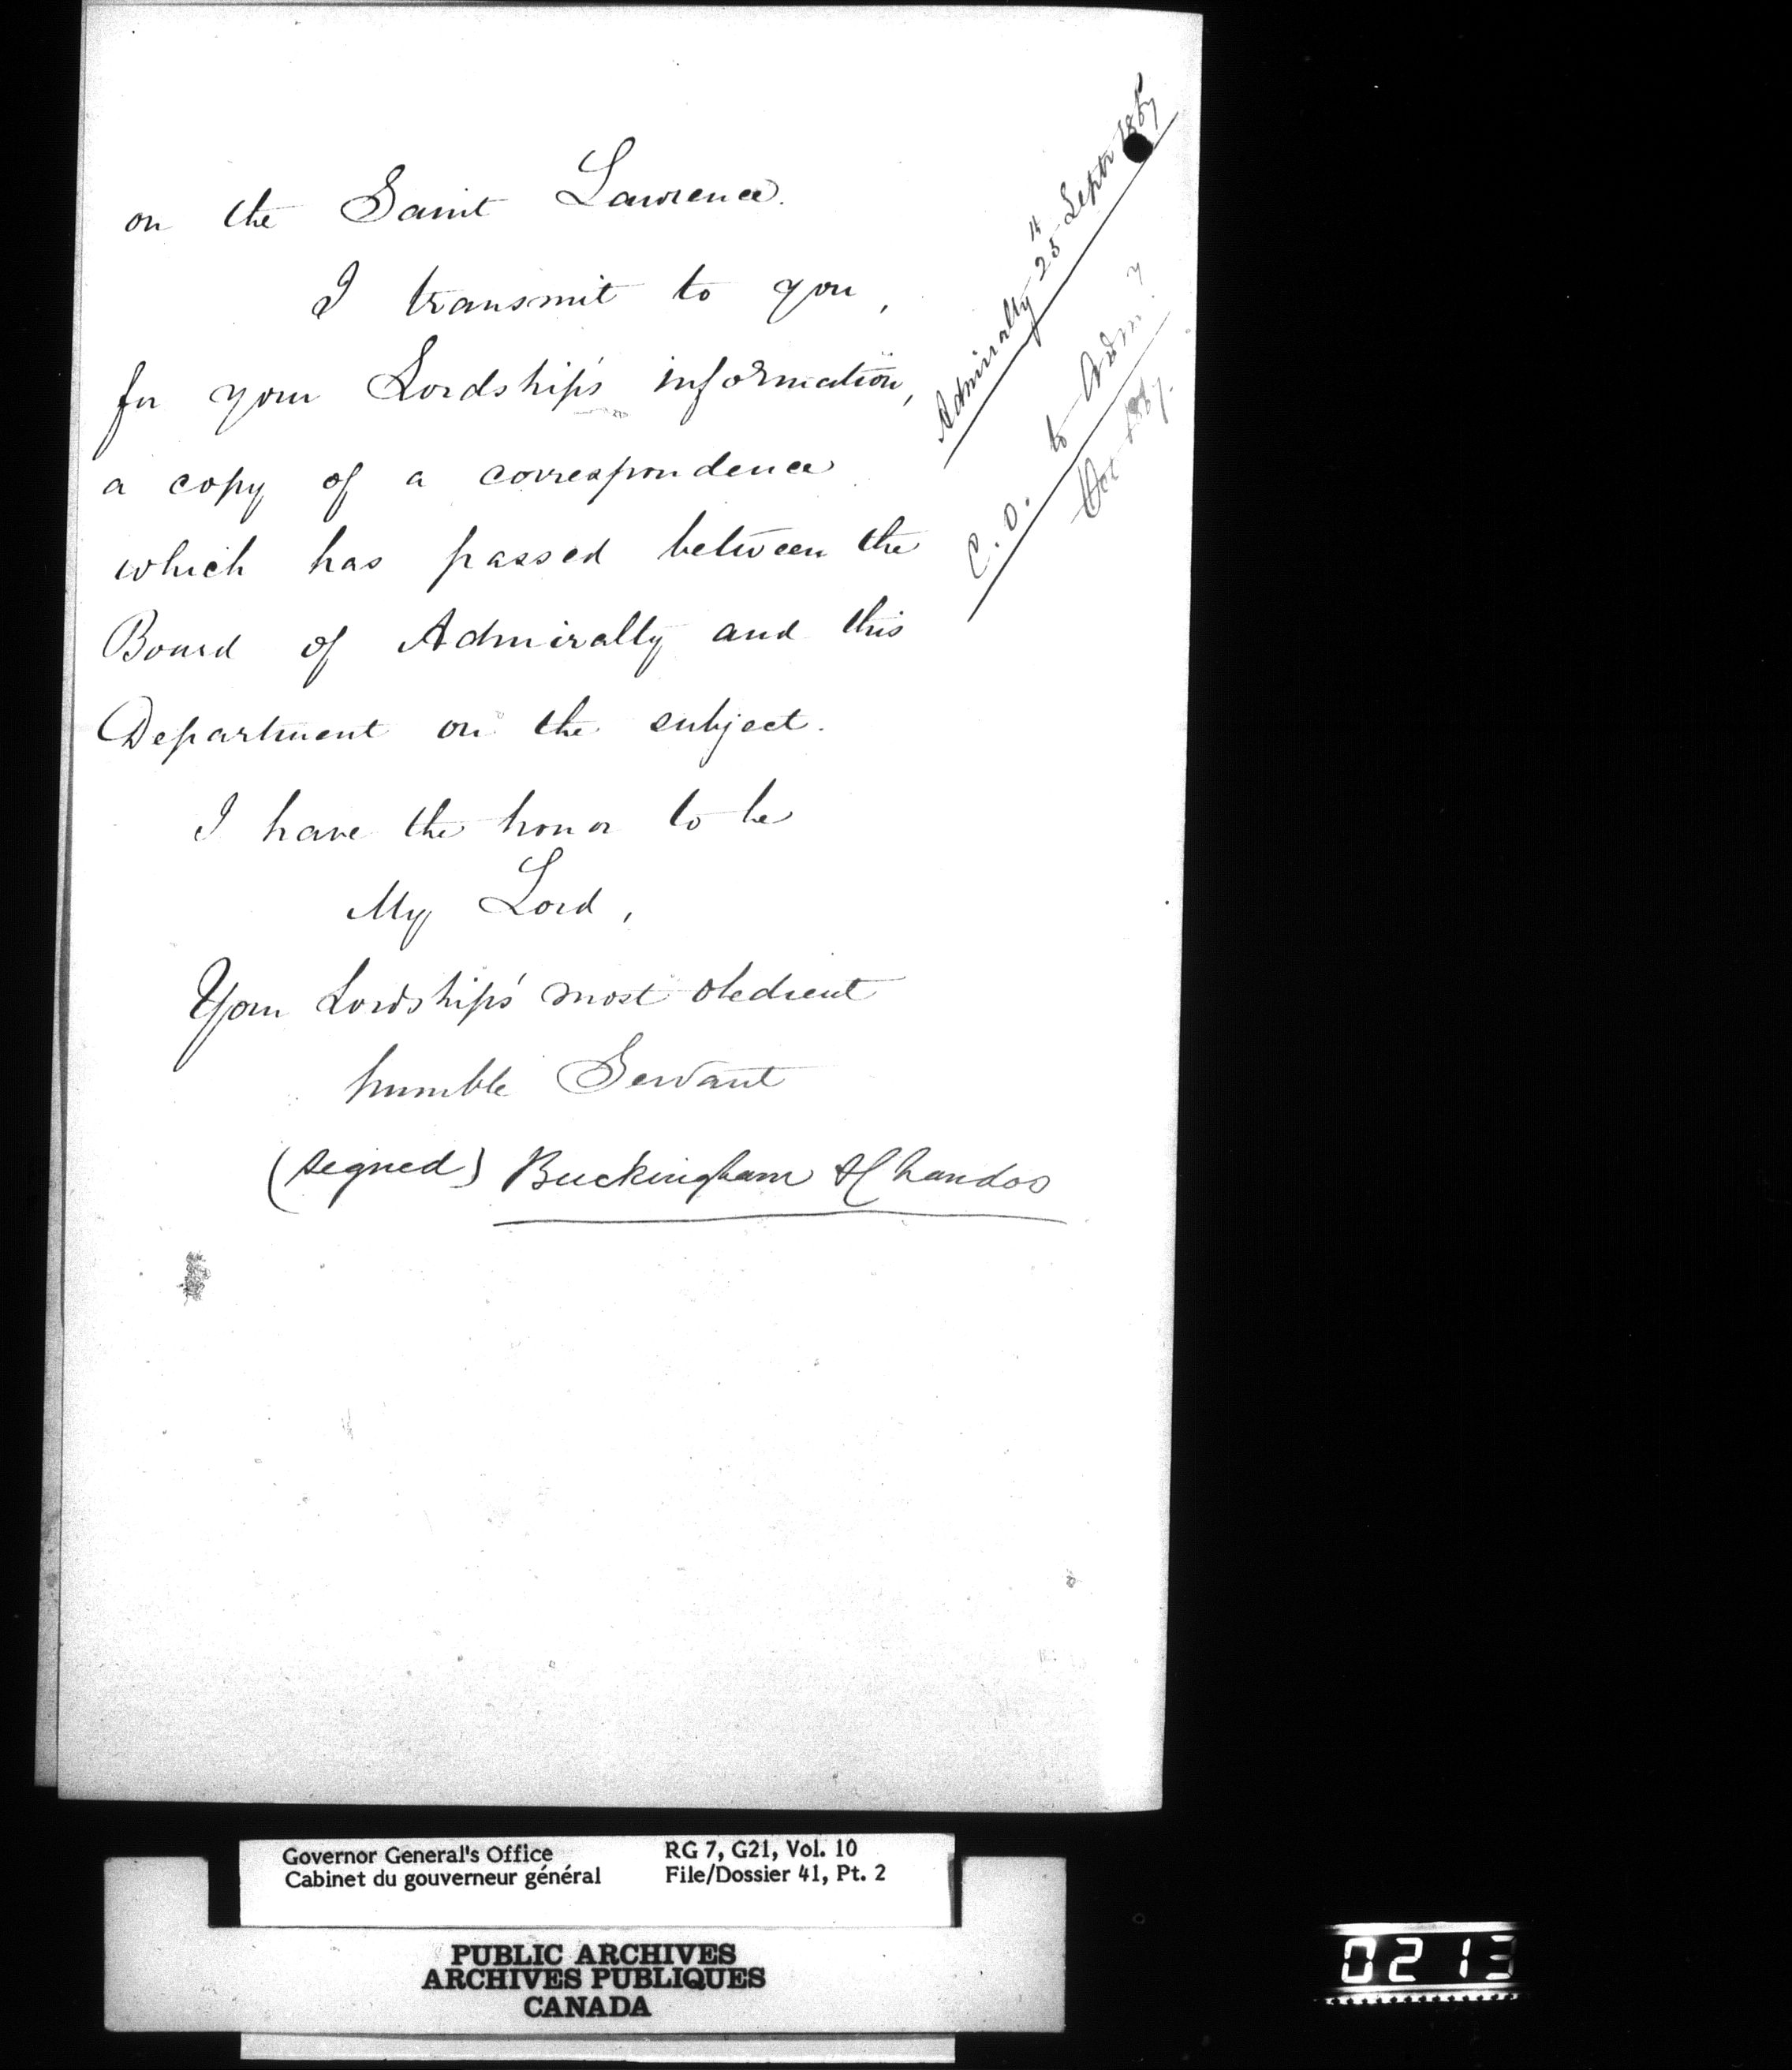 on the Saint Lawrence.
I transmit to you,
for your Lordship's information,
a copy of a correspondence
which has passed between the
Board of Admiralty and this
Department on the subject.
I have the honor to be
My Lord,
Your Lordship's most obedient
humble Servant
(signed) Buckingham & Chandos
Admiralty 25th Septr 1867
C.O. to Adm.y
Oct 1867.
Governor General's Office
Cabinet du gouverneur général
RG 7, G21, Vol. 10
File/Dossier 41, Pt. 2
PUBLIC ARCHIVES
ARCHIVES PUBLIQUES
CANADA
0213